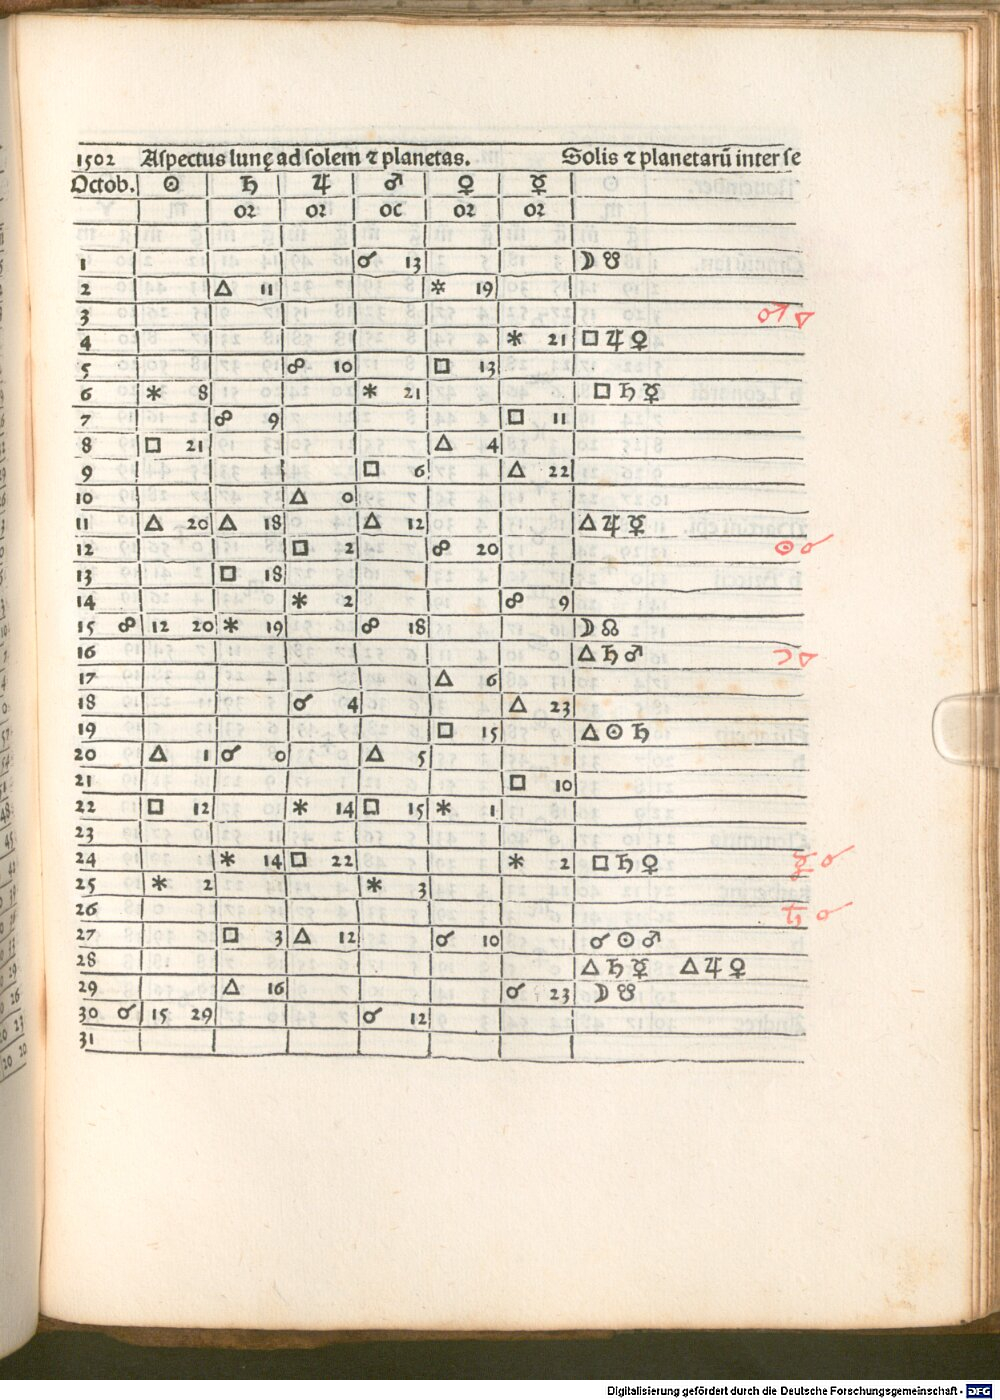 1502 Aſpectus lunę ad ſolem ⁊ planetas. Solis ⁊ planetarū inter ſe
Octob. ☉ ♄ ♃ ♂ ♀ ☿
oz oz oc oz oz
1 ☌ 13 ☽ ☋
2 △ 11 ✶ 19
3 ♂ △
4 ✶ 21 □ ♃ ♀
5 ☍ 10 □ 13
6 ✶ 8 ✶ 21 □ ♄ ☿
7 ☍ 9 □ 11
8 □ 21 △ 4
9 □ 6 △ 22
10 △ 0
11 △ 20 △ 18 △ 12 △ ♃ ☿
12 □ 2 ☍ 20 ☉ ☌
13 □ 18
14 ✶ 2 ☍ 9
15 ☍ 12 20 ✶ 19 ☍ 18 ☽ ☊
16 △ ♄ ♂
17 △ 6
18 ☌ 4 △ 23
19 □ 15 △ ☉ ♄
20 △ 1 ☌ 0 △ 5
21 □ 10
22 □ 12 ✶ 14 □ 15 ✶ 1
23
24 ✶ 14 □ 22 ✶ 2 □ ♄ ♀ ☿ ☌
25 ✶ 2 ✶ 3
26 ♄ ☌
27 □ 3 △ 12 ☌ 10 ☌ ☉ ♂
28 △ ♄ ☿ △ ♃ ♀
29 △ 16 ☌ 23 ☽ ☋
30 ☌ 15 29 ☌ 12
31
Digitalisierung gefördert durch die Deutsche Forschungsgemeinschaft - DFG